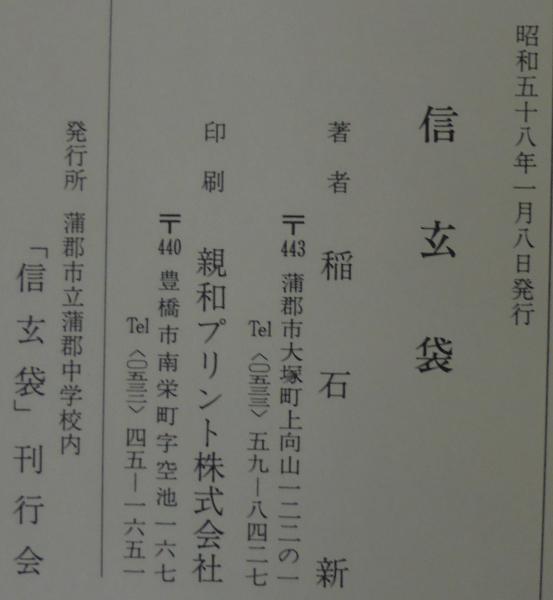 昭和五十八年一月八日発行
信玄袋
著者 稲石新
〒443 蒲郡市大塚町上向山一二二の一
Tel〈〇五三三〉五九―八四二七
印刷 親和プリント株式会社
〒440 豊橋市南栄町字空池一六七
Tel〈〇五三二〉四五―一六五一
発行所 蒲郡市立蒲郡中学校内
「信玄袋」刊行会